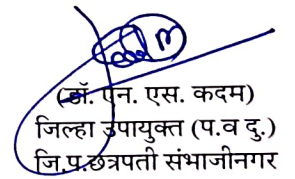 (डॉ. एन. एस. कदम)
जिल्हा उपायुक्त (प.व दु.)
जि.प.छत्रपती संभाजीनगर